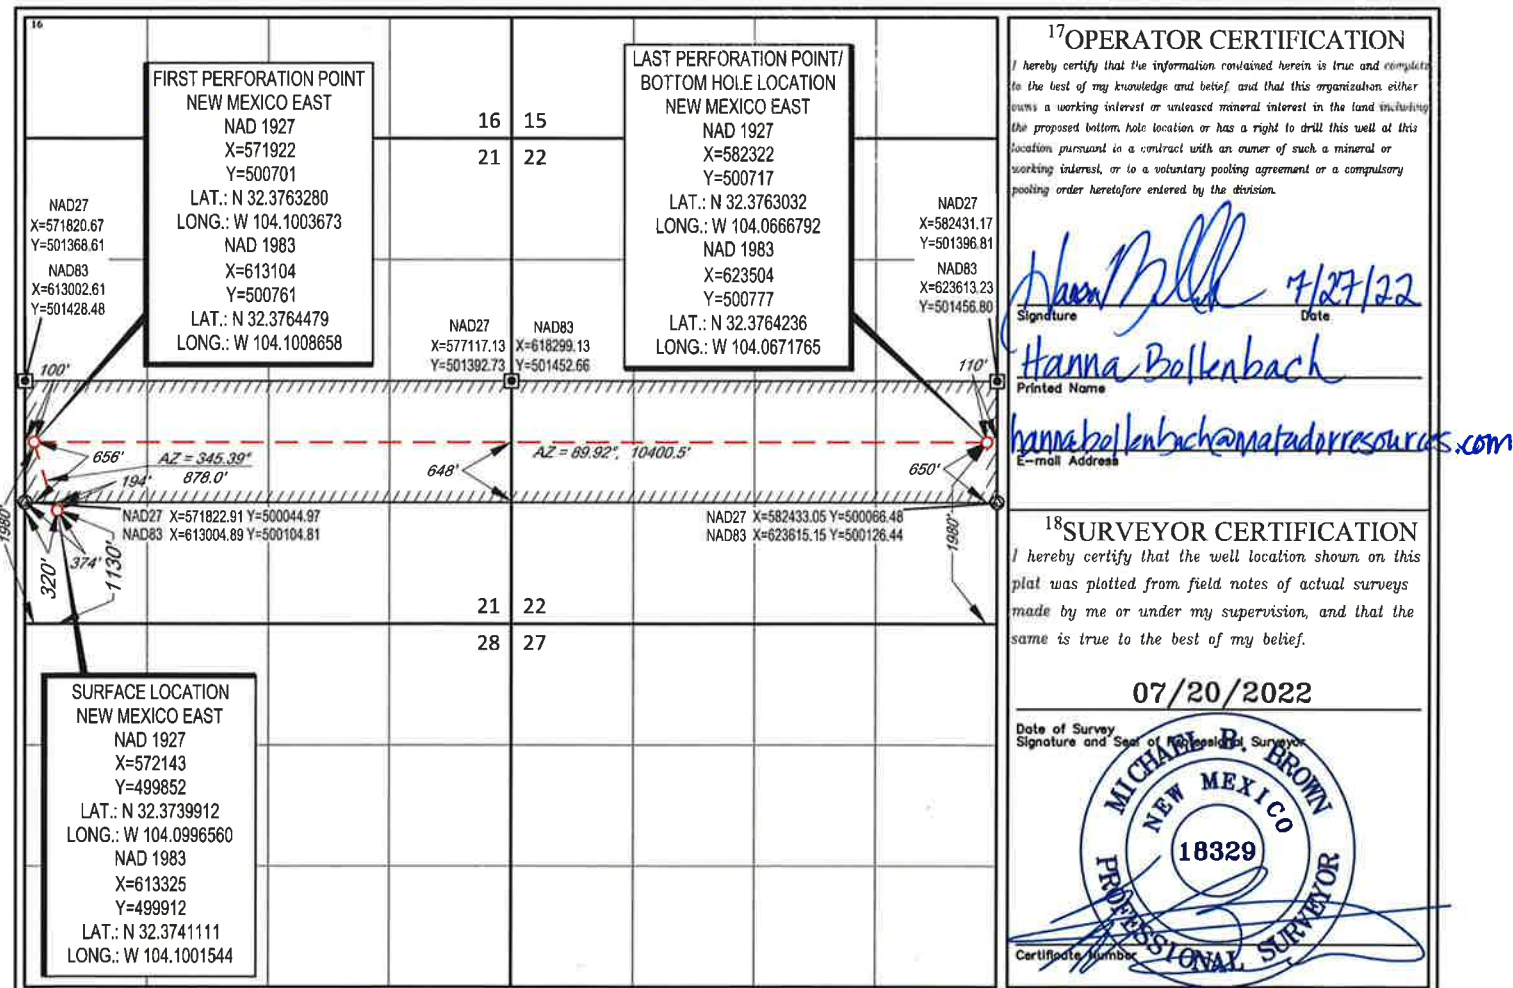 16
FIRST PERFORATION POINT
NEW MEXICO EAST
NAD 1927
X=571922
Y=500701
LAT.: N 32.3763280
LONG.: W 104.1003673
NAD 1983
X=613104
Y=500761
LAT.: N 32.3764479
LONG.: W 104.1008658
LAST PERFORATION POINT/
BOTTOM HOLE LOCATION
NEW MEXICO EAST
NAD 1927
X=582322
Y=500717
LAT.: N 32.3763032
LONG.: W 104.0666792
NAD 1983
X=623504
Y=500777
LAT.: N 32.3764236
LONG.: W 104.0671765
16 15
21 22
NAD27
X=571820.67
Y=501368.61
NAD83
X=613002.61
Y=501428.48
NAD27
X=577117.13
Y=501392.73
NAD83
X=618299.13
Y=501452.66
NAD27
X=582431.17
Y=501396.81
NAD83
X=623613.23
Y=501456.80
100'
110'
656'
AZ = 345.39°
878.0'
194'
648'
AZ = 89.92°, 10400.5'
650'
NAD27 X=571822.91 Y=500044.97
NAD83 X=613004.89 Y=500104.81
NAD27 X=582433.05 Y=500066.48
NAD83 X=623615.15 Y=500126.44
1980'
320'
374'
1130'
1980'
21 22
28 27
SURFACE LOCATION
NEW MEXICO EAST
NAD 1927
X=572143
Y=499852
LAT.: N 32.3739912
LONG.: W 104.0996560
NAD 1983
X=613325
Y=499912
LAT.: N 32.3741111
LONG.: W 104.1001544
17OPERATOR CERTIFICATION
I hereby certify that the information contained herein is true and complete
to the best of my knowledge and belief, and that this organization either
owns a working interest or unleased mineral interest in the land including
the proposed bottom hole location or has a right to drill this well at this
location pursuant to a contract with an owner of such a mineral or
working interest, or to a voluntary pooling agreement or a compulsory
pooling order heretofore entered by the division.
7/27/22
Signature Date
Hanna Bollenbach
Printed Name
hanna.bollenbach@matadorresources.com
E-mail Address
18SURVEYOR CERTIFICATION
I hereby certify that the well location shown on this
plat was plotted from field notes of actual surveys
made by me or under my supervision, and that the
same is true to the best of my belief.
07/20/2022
Date of Survey
Signature and Seal of Professional Surveyor
MICHAEL B. BROWN
NEW MEXICO
18329
PROFESSIONAL SURVEYOR
Certificate Number